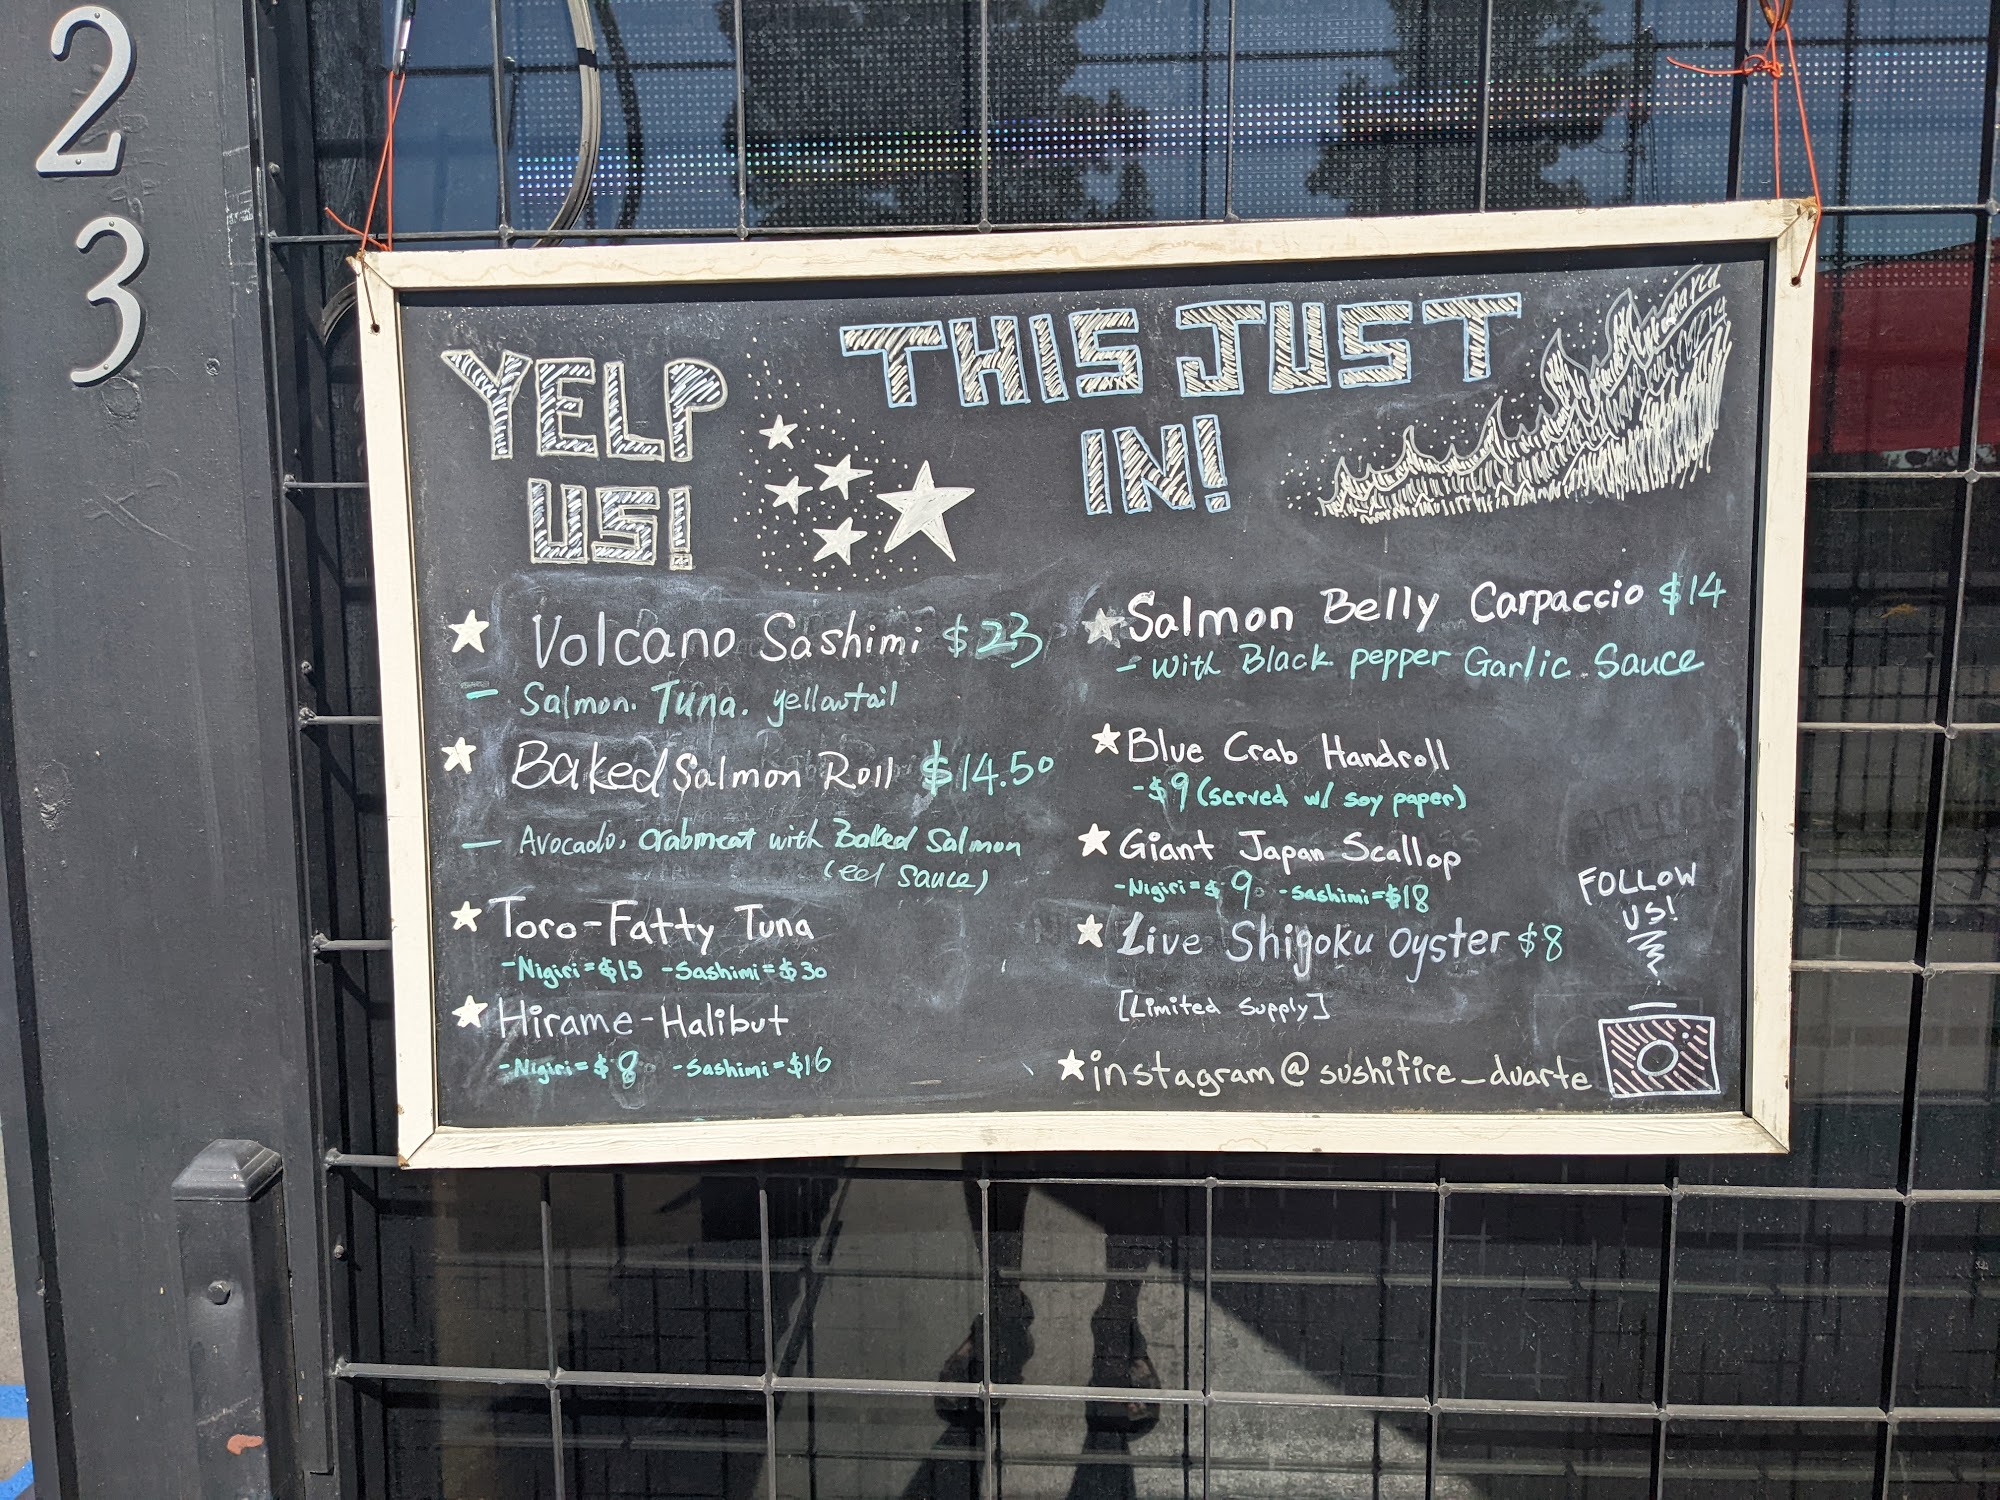 2
3
YELP
US!
THIS JUST
IN!
Volcano Sashimi $23
- Salmon. Tuna. yellowtail
Baked Salmon Roll $14.50
- Avocado, crabmeat with Baked Salmon
(eel sauce)
Toro-Fatty Tuna
-Nigiri=$15 -Sashimi=$30
Hirame-Halibut
-Nigiri=$8 -Sashimi=$16
Salmon Belly Carpaccio $14
- with Black pepper Garlic Sauce
Blue Crab Handroll
-$9 (served w/ soy paper)
Giant Japan Scallop
-Nigiri=$9 -Sashimi=$18
Live Shigoku Oyster $8
[Limited Supply]
FOLLOW
US!
instagram@sushifire_duarte